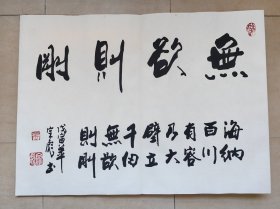 無欲則剛
海納
百川
有容
乃大
壁立
千仞
無欲
則剛
戊寅年